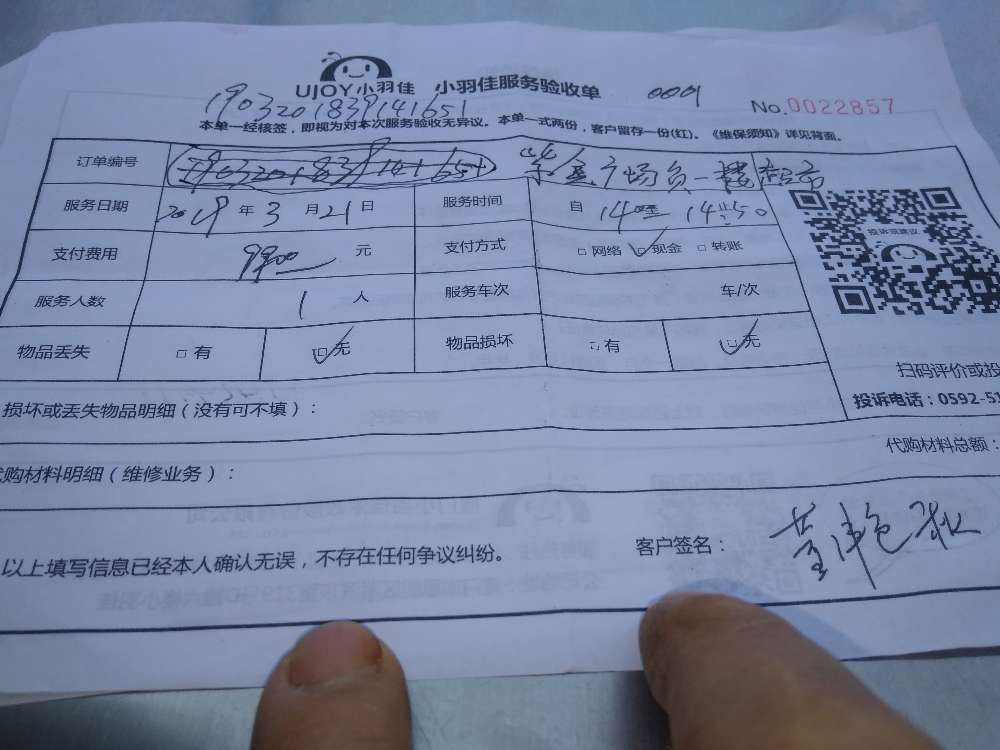 UJOY小羽佳 小羽佳服务验收单 0001
1903201839141651 No.0022857
本单一经核签，即视为对本次服务验收无异议。本单一式两份，客户留存一份(红)。《维保须知》详见背面。
订单编号
服务日期 2019年3月21日 服务时间 自 14
支付费用 元 支付方式 □网络 ☑现金 □转账
投诉或建议
服务人数 1人 服务车次 车/次
物品丢失 □有 ☑无 物品损坏 □有 ☑无
扫码评价或投
损坏或丢失物品明细（没有可不填）：
投诉电话：0592-51
代购材料总额：
购材料明细（维修业务）：
以上填写信息已经本人确认无误，不存在任何争议纠纷。 客户签名：